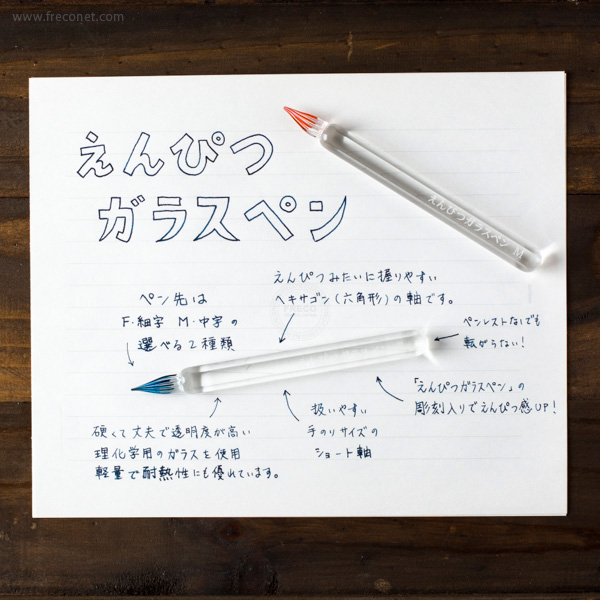 www.freconet.com
えんぴつ
ガラスペン
えんぴつガラスペン M
えんぴつみたいに握りやすい
ヘキサゴン(六角形)の軸です。
ペン先は
F・細字 M・中字の
選べる2種類
ペンレストなしでも
転がらない!
「えんぴつガラスペン」の
彫刻入りでえんぴつ感UP!
扱いやすい
手のりサイズの
ショート軸
硬くて丈夫で透明度が高い
理化学用のガラスを使用
軽量で耐熱性にも優れています。
FRECO